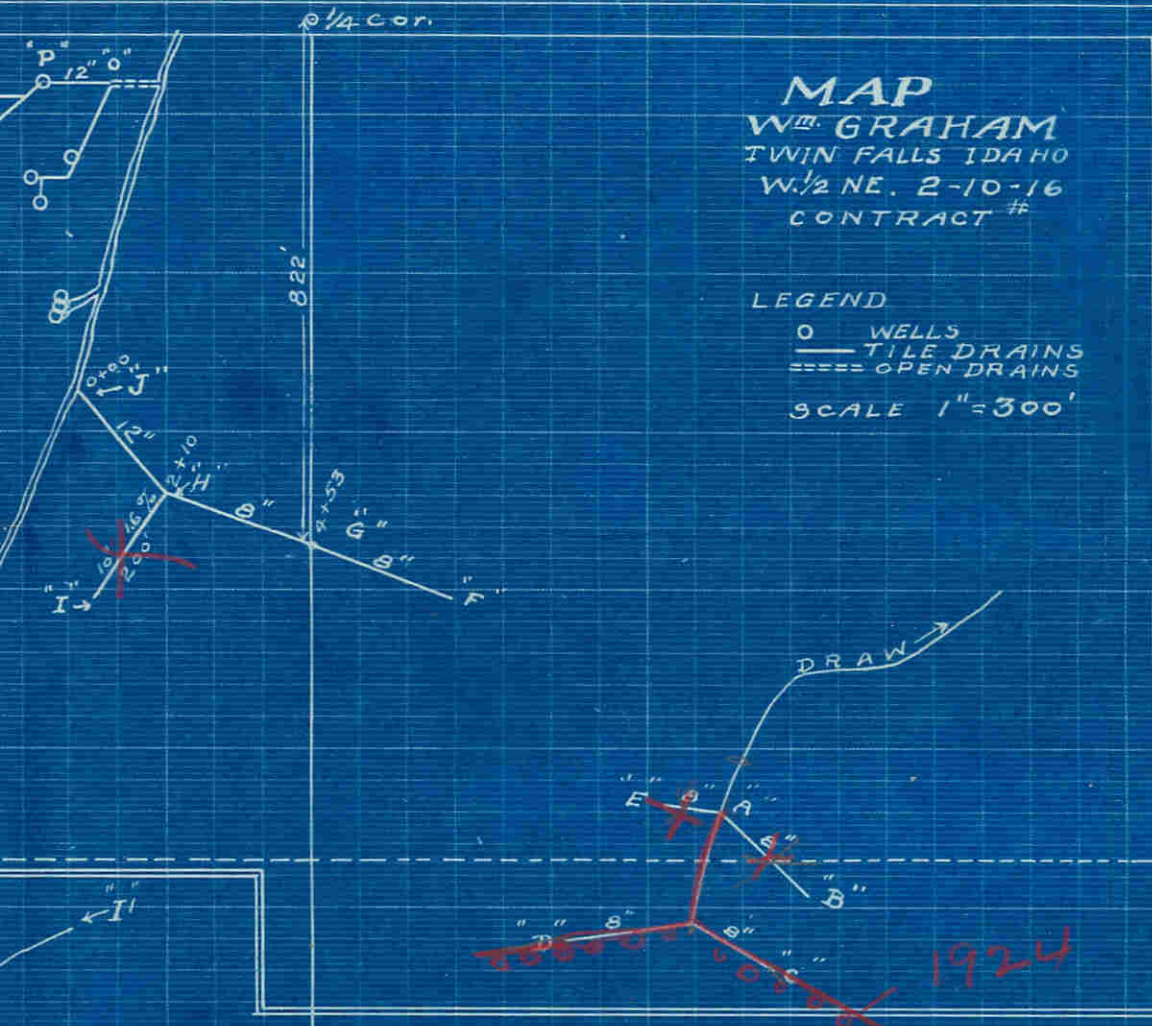 1/4 Cor.
"P"
12"
"O"
MAP
Wm. GRAHAM
TWIN FALLS IDAHO
W. 1/2 NE. 2-10-16
CONTRACT #
822'
LEGEND
O WELLS
TILE DRAINS
OPEN DRAINS
SCALE 1"=300'
0+00
"J"
12"
2+10
"H"
8"
4+53
"G"
8"
"F"
1.6%
200'
"I"
DRAW
"E"
8"
"A"
8"
"B"
"I"
"D"
8"
8"
"C"
1924